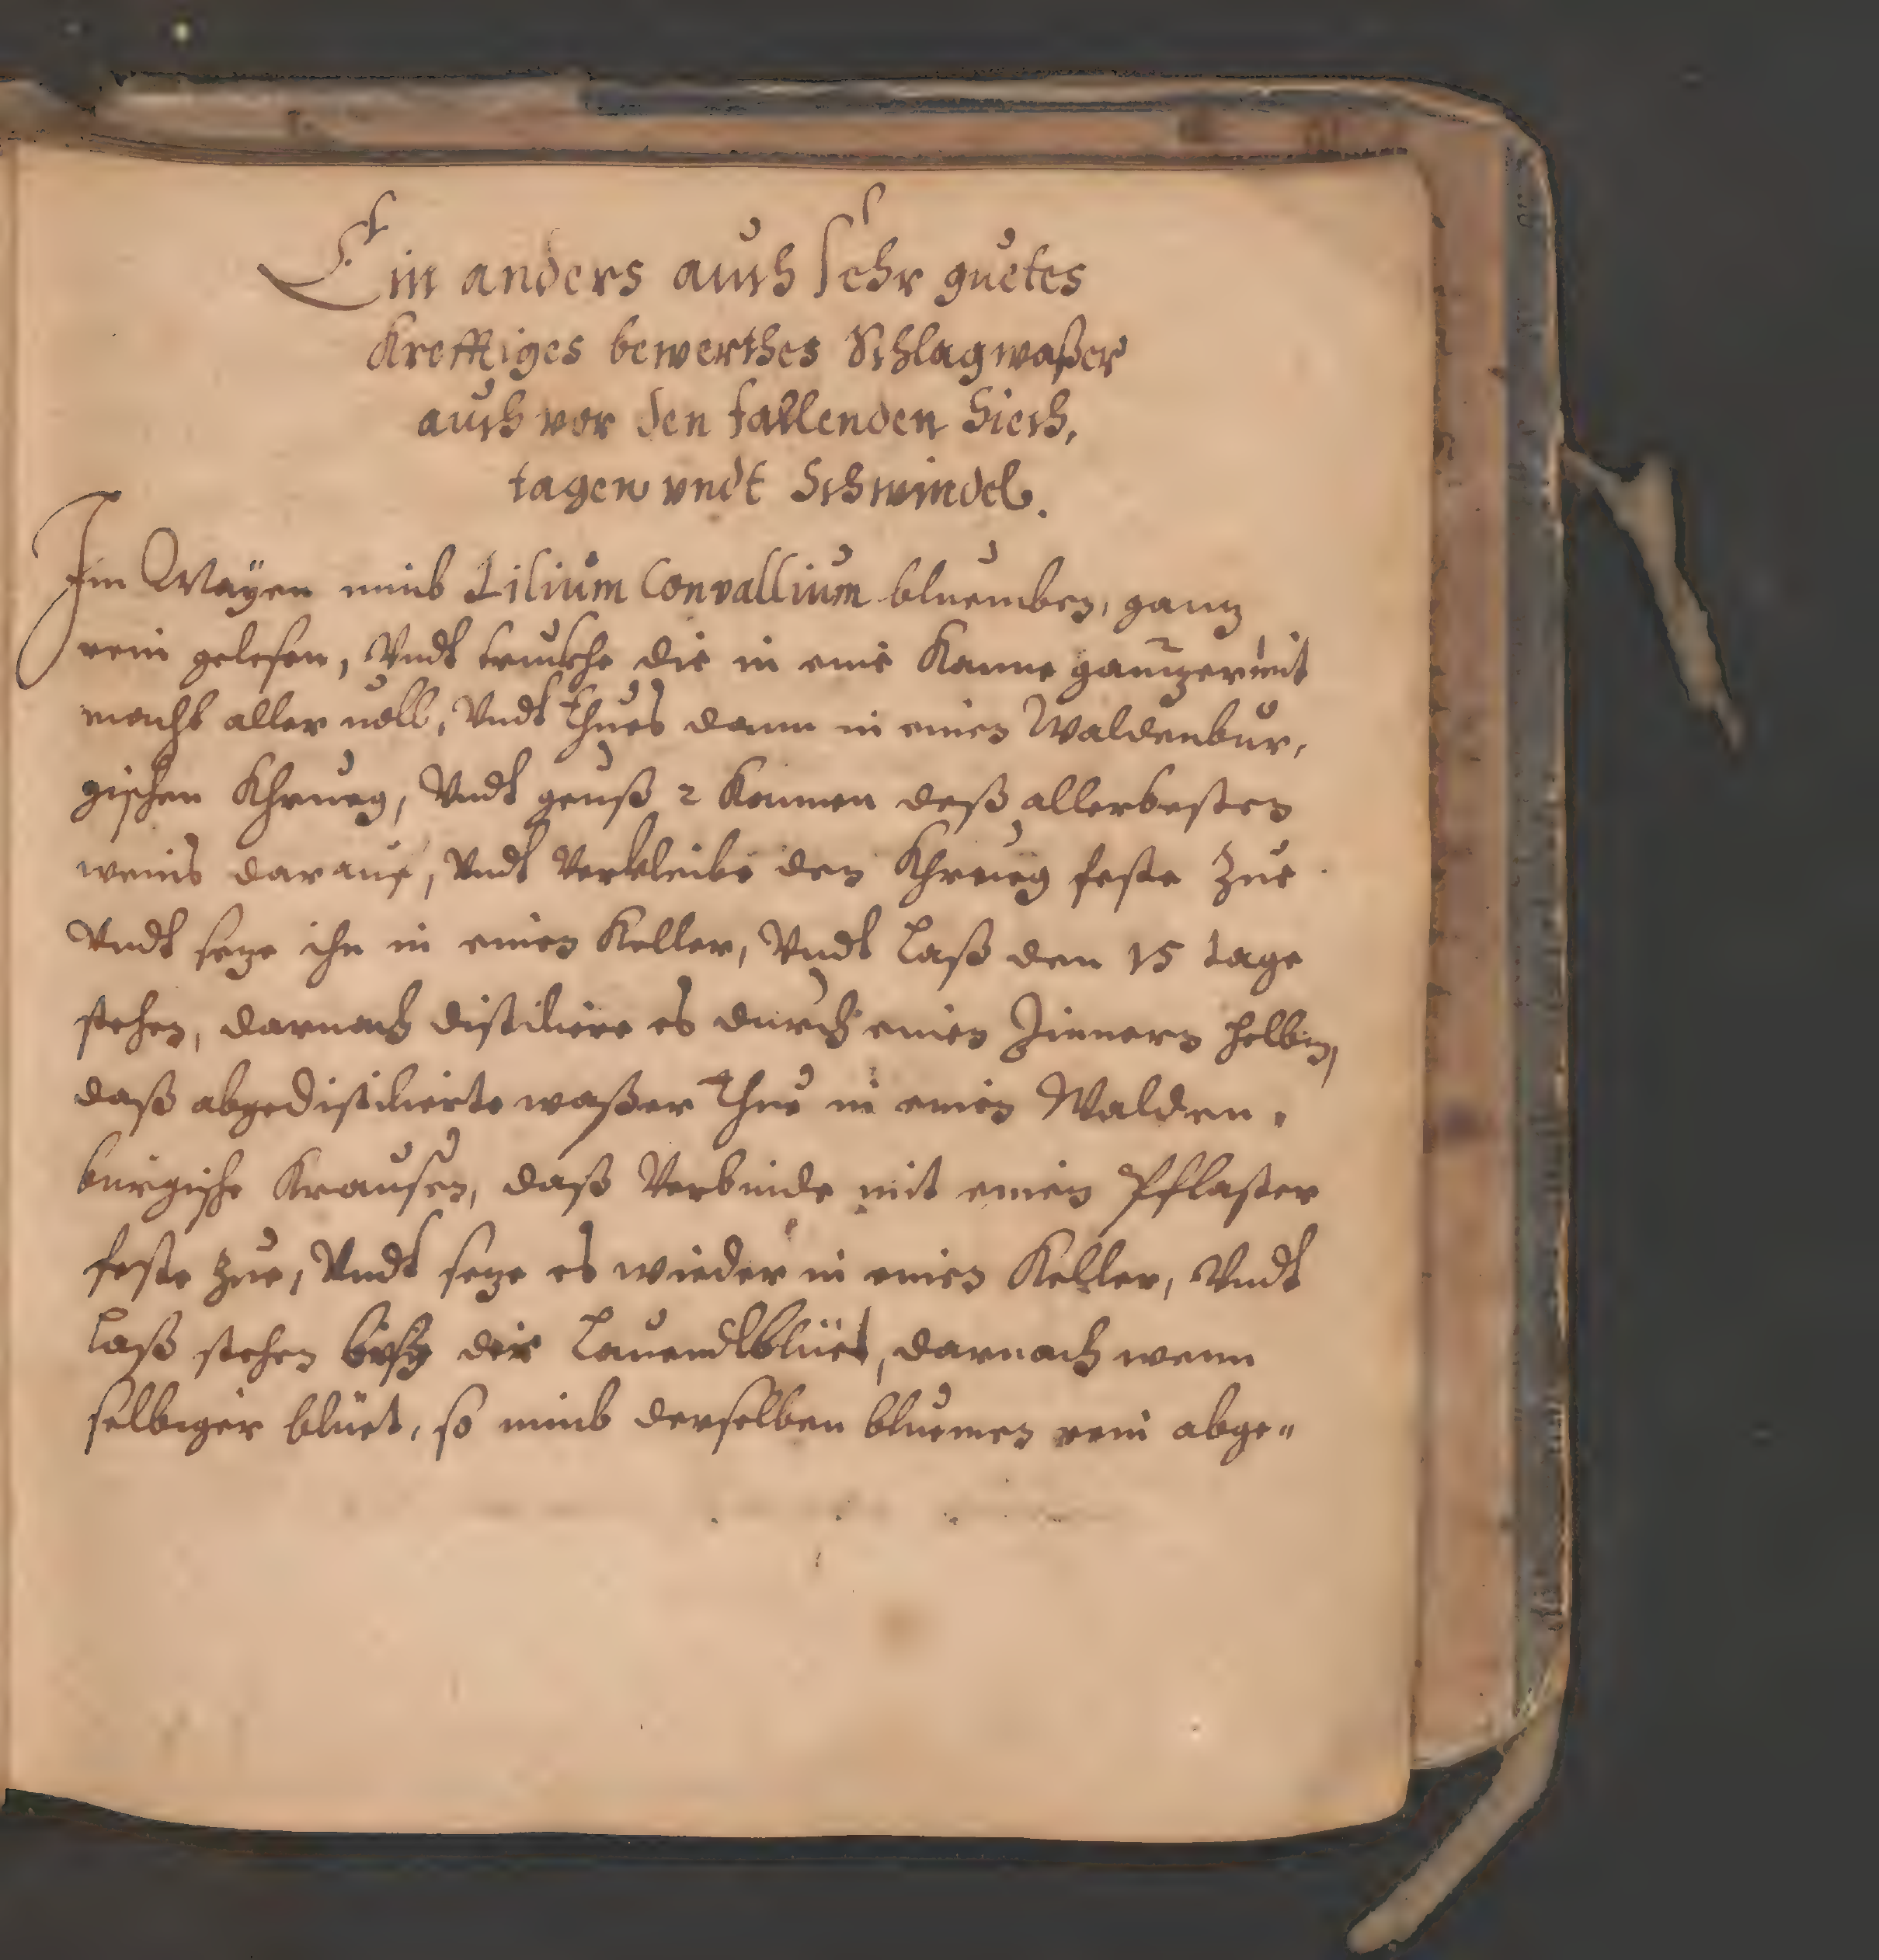 Ein anders auch sehr guetes
Krefftiges bewerthes Schlagwaßer
auch vor den fallenden Siech,
tagen vndt Schwindel.
Im Mayen nimb Lilium Convallium bluemben, gantz
rein gelesen, Vndt truckhe die in eine Kanne mit
macht aller voll, Vndt Thues dann in einen Waldenbur,
gischen Khrueg, Vndt geuß 2 Kannen deß allerbesten
weins darauf, Vndt Verkleibe den Khrueg feste Zue
Vndt seze ihn in einen Keller, Vndt Laß den 15 tage
stehen, darnach distiliere es durch einen Zinnern helbm,
daß abgedistilierte waßer Thue in einen Walden,
burgische Krausen, daß Verbinde mit einen Pflaster
feste zue, Vndt seze es wieder in einen Keller, Vndt
Laß stehen der Lauendlblüet, darnach wenn
selbiger blüet, so nimb derselben bluemen rein abge"